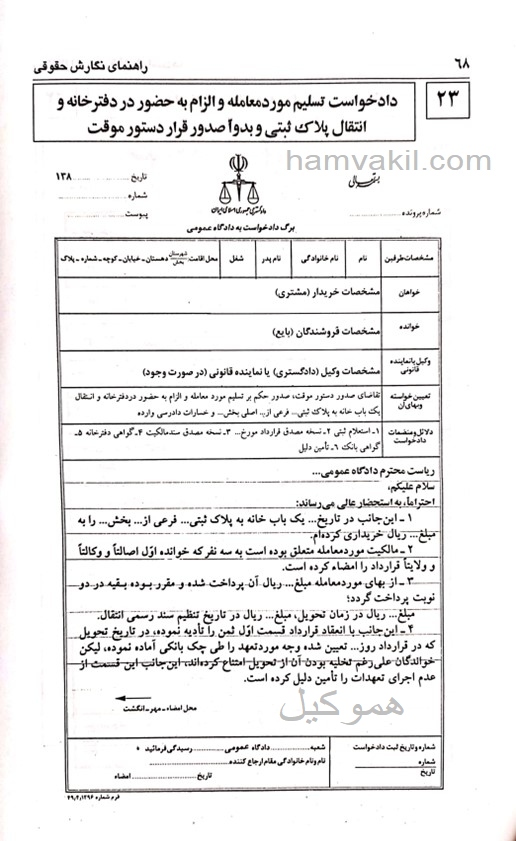 ۶۸
راهنمای نگارش حقوقی
۲۳
دادخواست تسلیم مورد معامله و الزام به حضور در دفترخانه و
انتقال پلاک ثبتی و بدواً صدور قرار دستور موقت
hamvakil.com
بسمه‌تعالی
تاریخ .......... ۱۳۸
شماره ..........
پیوست ..........
شماره پرونده ..........
دادگستری جمهوری اسلامی ایران
برگ دادخواست به دادگاه عمومی
مشخصات طرفین
نام
نام خانوادگی
نام پدر
شغل
محل اقامت شهرستان بخش دهستان ـ خیابان ـ کوچه ـ شماره ـ پلاک
خواهان
مشخصات خریدار (مشتری)
خوانده
مشخصات فروشندگان (بایع)
وکیل یا نماینده
قانونی
مشخصات وکیل (دادگستری) یا نماینده قانونی (در صورت وجود)
تعیین خواسته
وبهای آن
تقاضای صدور دستور موقت، صدور حکم بر تسلیم مورد معامله و الزام به حضور دردفترخانه و انتقال
یک باب خانه به پلاک ثبتی... فرعی از... اصلی بخش... و خسارات دادرسی وارده
دلائل ومنضمات
دادخواست
۱ـ استعلام ثبتی ۲ـ نسخه مصدق قرارداد مورخ... ۳ـ نسخه مصدق سندمالکیت ۴ـ گواهی دفترخانه ۵ـ
گواهی بانک ۶ـ تأمین دلیل
ریاست محترم دادگاه عمومی...
سلام علیکم،
احتراماً، به استحضار عالی می‌رساند:
۱ ـ این‌جانب در تاریخ... یک باب خانه به پلاک ثبتی... فرعی از... بخش... را به
مبلغ... ریال خریداری کرده‌ام.
۲ ـ مالکیت مورد معامله متعلق بوده است به سه نفر که خوانده اوّل اصالتاً و وکالتاً
و ولایتاً قرارداد را امضاء کرده است.
۳ ـ از بهای مورد معامله مبلغ... ریال آن پرداخت شده و مقرر بوده بقیه در دو
نوبت پرداخت گردد؛
مبلغ... ریال در زمان تحویل، مبلغ... ریال در تاریخ تنظیم سند رسمی انتقال.
۴ ـ این‌جانب با انعقاد قرارداد قسمت اوّل ثمن را تأدیه نموده، در تاریخ تحویل
که در قرارداد روز... تعیین شده وجه مورد تعهد را طی چک بانکی آماده نموده، لیکن
خواندگان علی‌رغم تخلیه بودن آن از تحویل امتناع کرده‌اند، این‌جانب این قسمت از
عدم اجرای تعهدات را تأمین دلیل کرده است.
محل امضاء ـ مهر ـ انگشت
هموکیل
شماره و تاریخ ثبت دادخواست
شماره
تاریخ
شعبه .......... دادگاه عمومی .......... رسیدگی فرمائید
نام ونام خانوادگی مقام ارجاع کننده ..........
تاریخ .......... امضاء
فرم شماره ۴۹٫۲٫۱۲۹۶